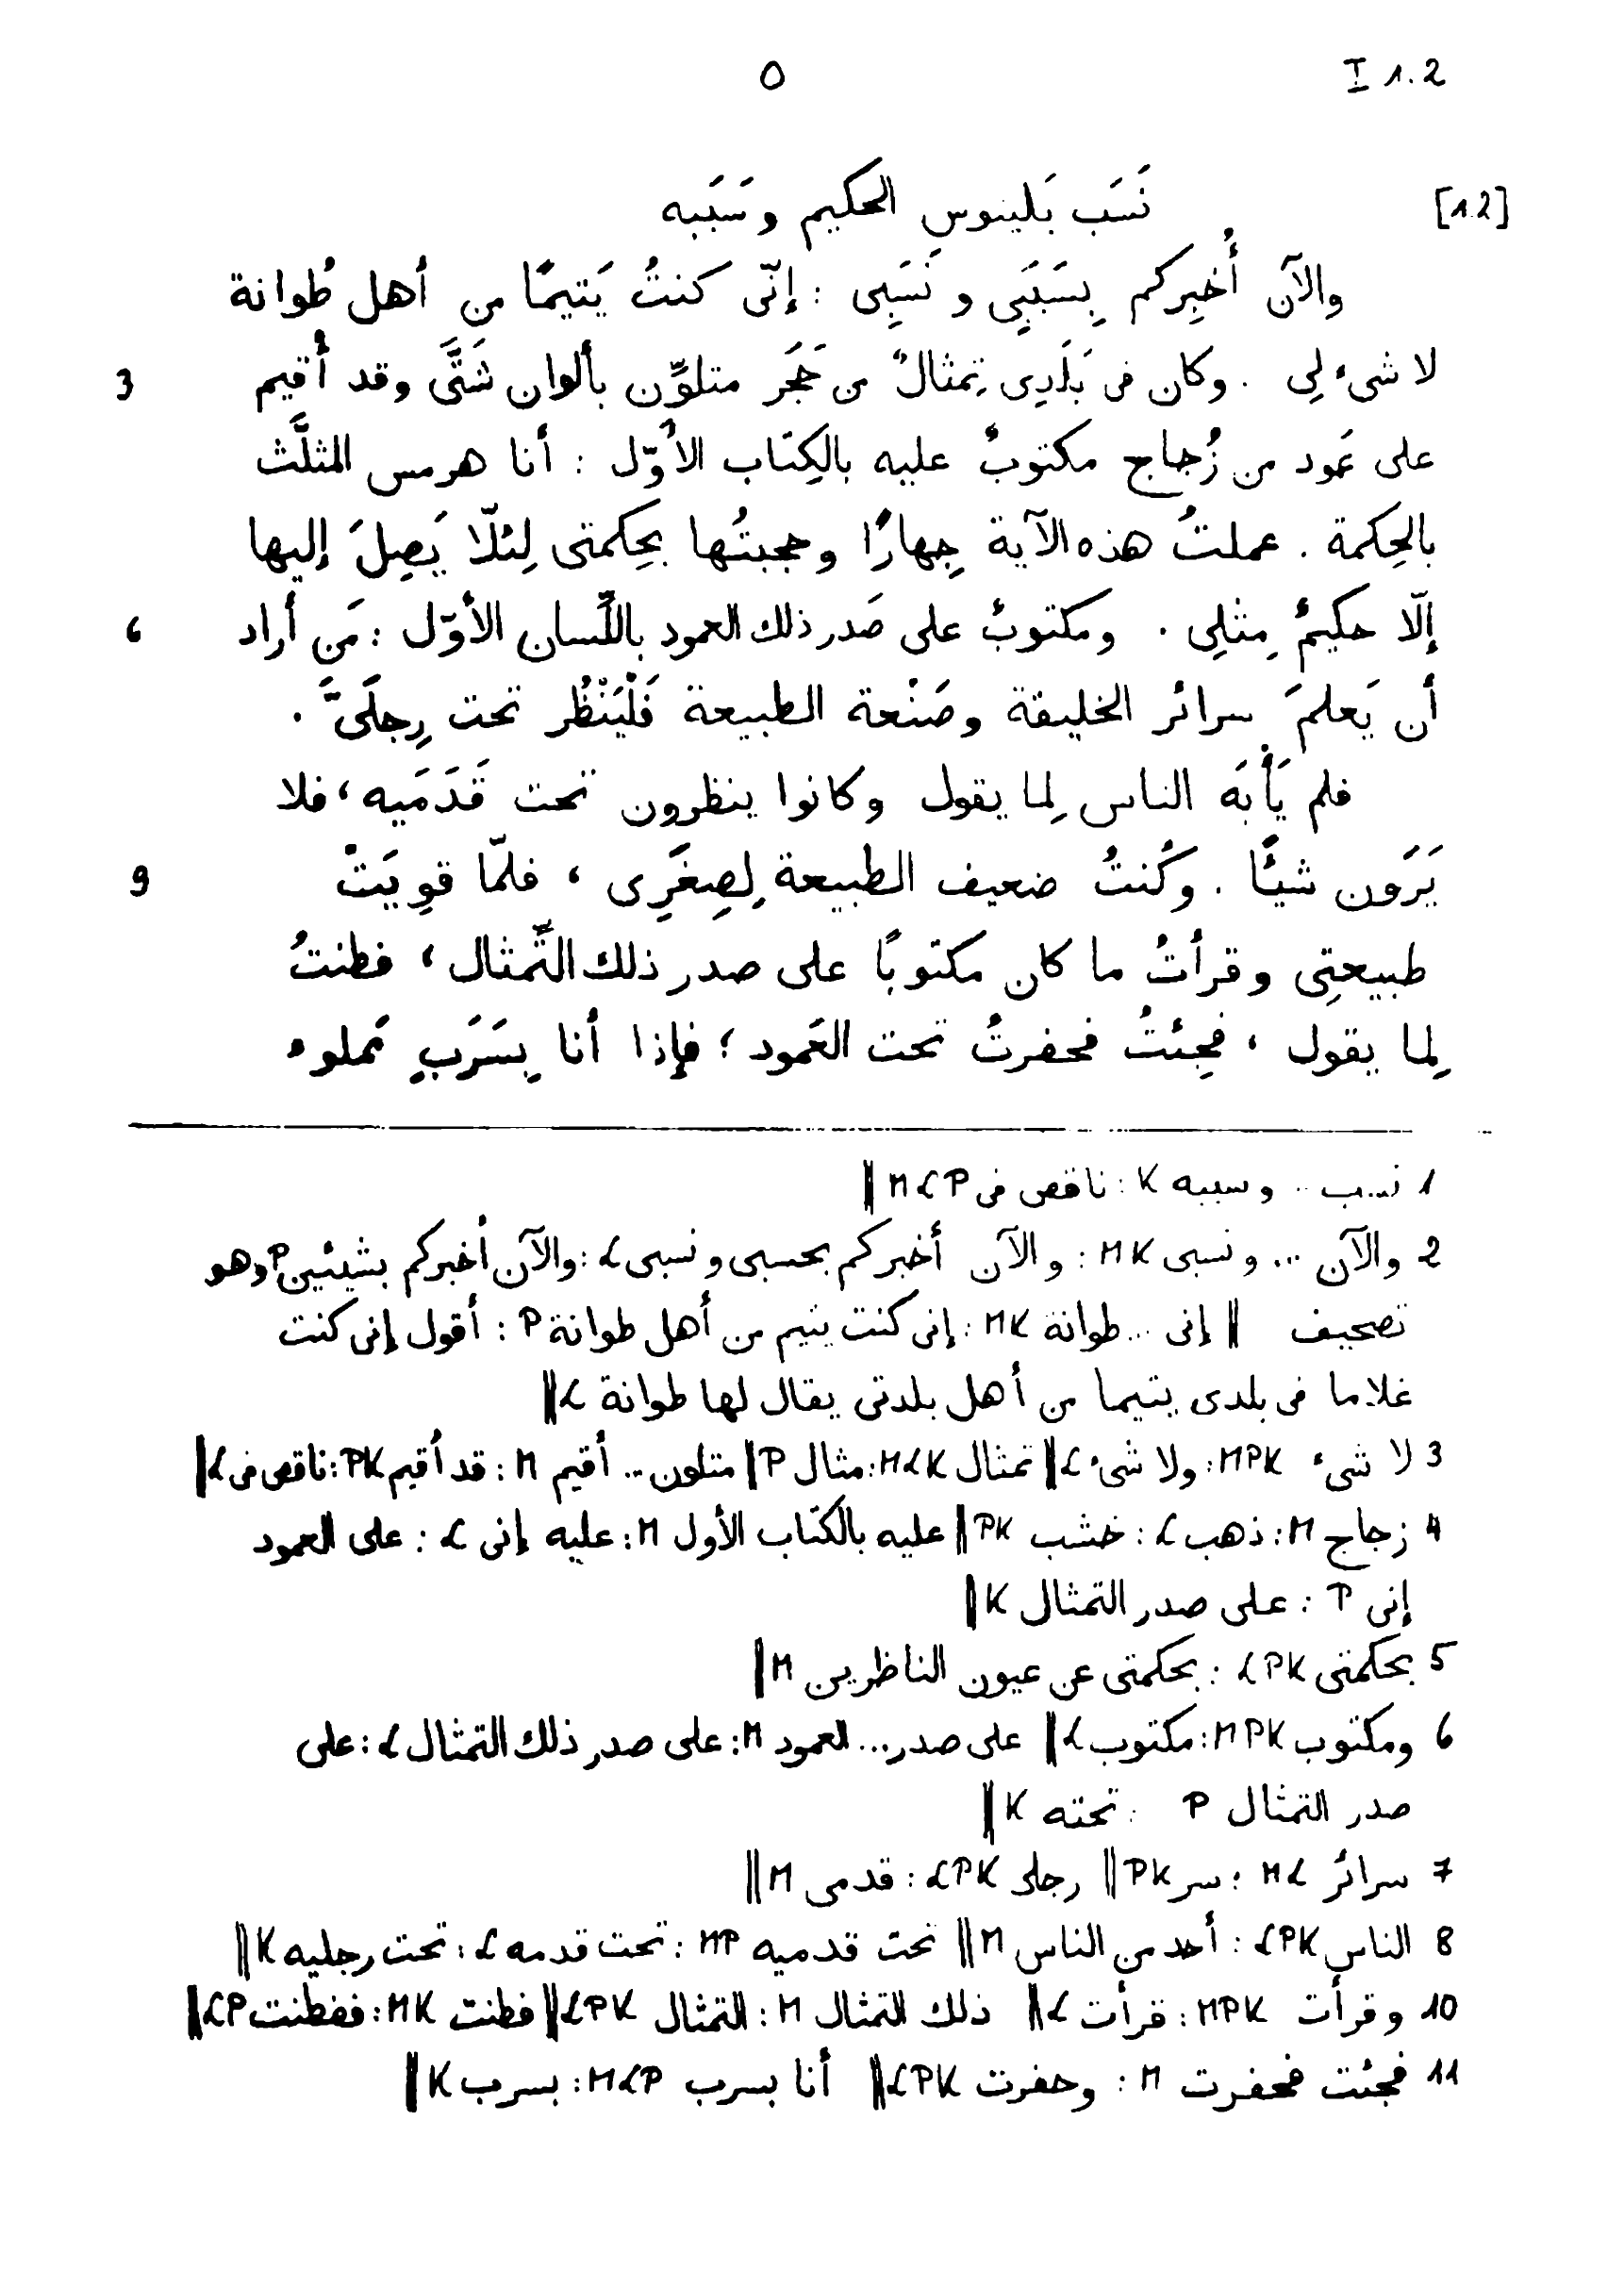 I 1.2
٥
[1.2] نَسَب بَلينوس الحكيم وسَبَبه
والآن أُخبِركم بِسَبَبَي ونَسَبِى : إنّى كنتُ يَتيمًا من أهل طُوانة
3 لا شىء لِى . وكان فى بَلَدِى تِمثالٌ من حَجَر متلوِّن بألوان شَتَّى وقد أُقيم
على عَمود من زُجاج مكتوبٌ عليه بالكِتَاب الأوّل : أنا هرمس المثلَّث
بالحِكمة . عملتُ هذه الآية جِهارًا وحجبتُها بحِكمتى لِئلّا يَصِلَ إليها
6 إلّا حكيمٌ مِثلِى . ومكتوبٌ على صَدر ذلك العمود باللِّسان الأوّل : مَن أراد
أن يَعلمَ سرائر الخليقة وصَنْعة الطبيعة فَلْيَنْظُر تحت رِجلَىَّ .
فلم يَأْبَه الناس لِما يقول وكانوا ينظرون تحت قَدَمَيه ، فلا
9 يَرَون شيئًا . وكُنتُ ضعيف الطبيعة لِصِغَرِى ، فلمّا قوِيَتْ
طبيعتِى وقرأتُ ما كان مكتوبًا على صدر ذلك التِّمثال ، فطنتُ
لِما يقول ، فجِئتُ فحفرتُ تحت العَمود ؛ فإذا أنا بِسَرَبٍ مَملوء
1 نسب .. وسببه K : ناقص فى MLP ‖
2 والآن ... ونسبى MK : والآن أخبركم بحسبى ونسبى L : والآن أخبركم بشيئين P وهو
تصحيف ‖ إنى ... طوانة MK : إنى كنت يتيم من أهل طوانة P : أقول إنى كنت
غلاما فى بلدى يتيما من أهل بلدتى يقال لها طوانة L ‖
3 لا شىء MPK : ولا شىء L ‖ تمثال MLK : مثال P ‖ متلون ... أقيم M : قد أقيم PK : ناقص فى L ‖
4 زجاج M : ذهب L : خشب PK ‖ عليه بالكتاب الأول M : عليه إنى L : على العمود
إنى P : على صدر التمثال K ‖
5 بحكمتى LPK : بحكمتى عن عيون الناظرين M ‖
6 ومكتوب MPK : مكتوب L ‖ على صدر ... العمود M : على صدر ذلك التمثال L : على
صدر التمثال P : تحته K ‖
7 سرائر ML : سر PK ‖ رجلى LPK : قدمى M ‖
8 الناس LPK : أحد من الناس M ‖ تحت قدميه MP : تحت قدمه L : تحت رجليه K ‖
10 وقرأت MPK : قرأت L ‖ ذلك التمثال M : التمثال LPK ‖ فطنت MK : ففطنت LP ‖
11 فجئت فحفرت M : وحفرت LPK ‖ أنا بسرب MLP : بسرب K ‖